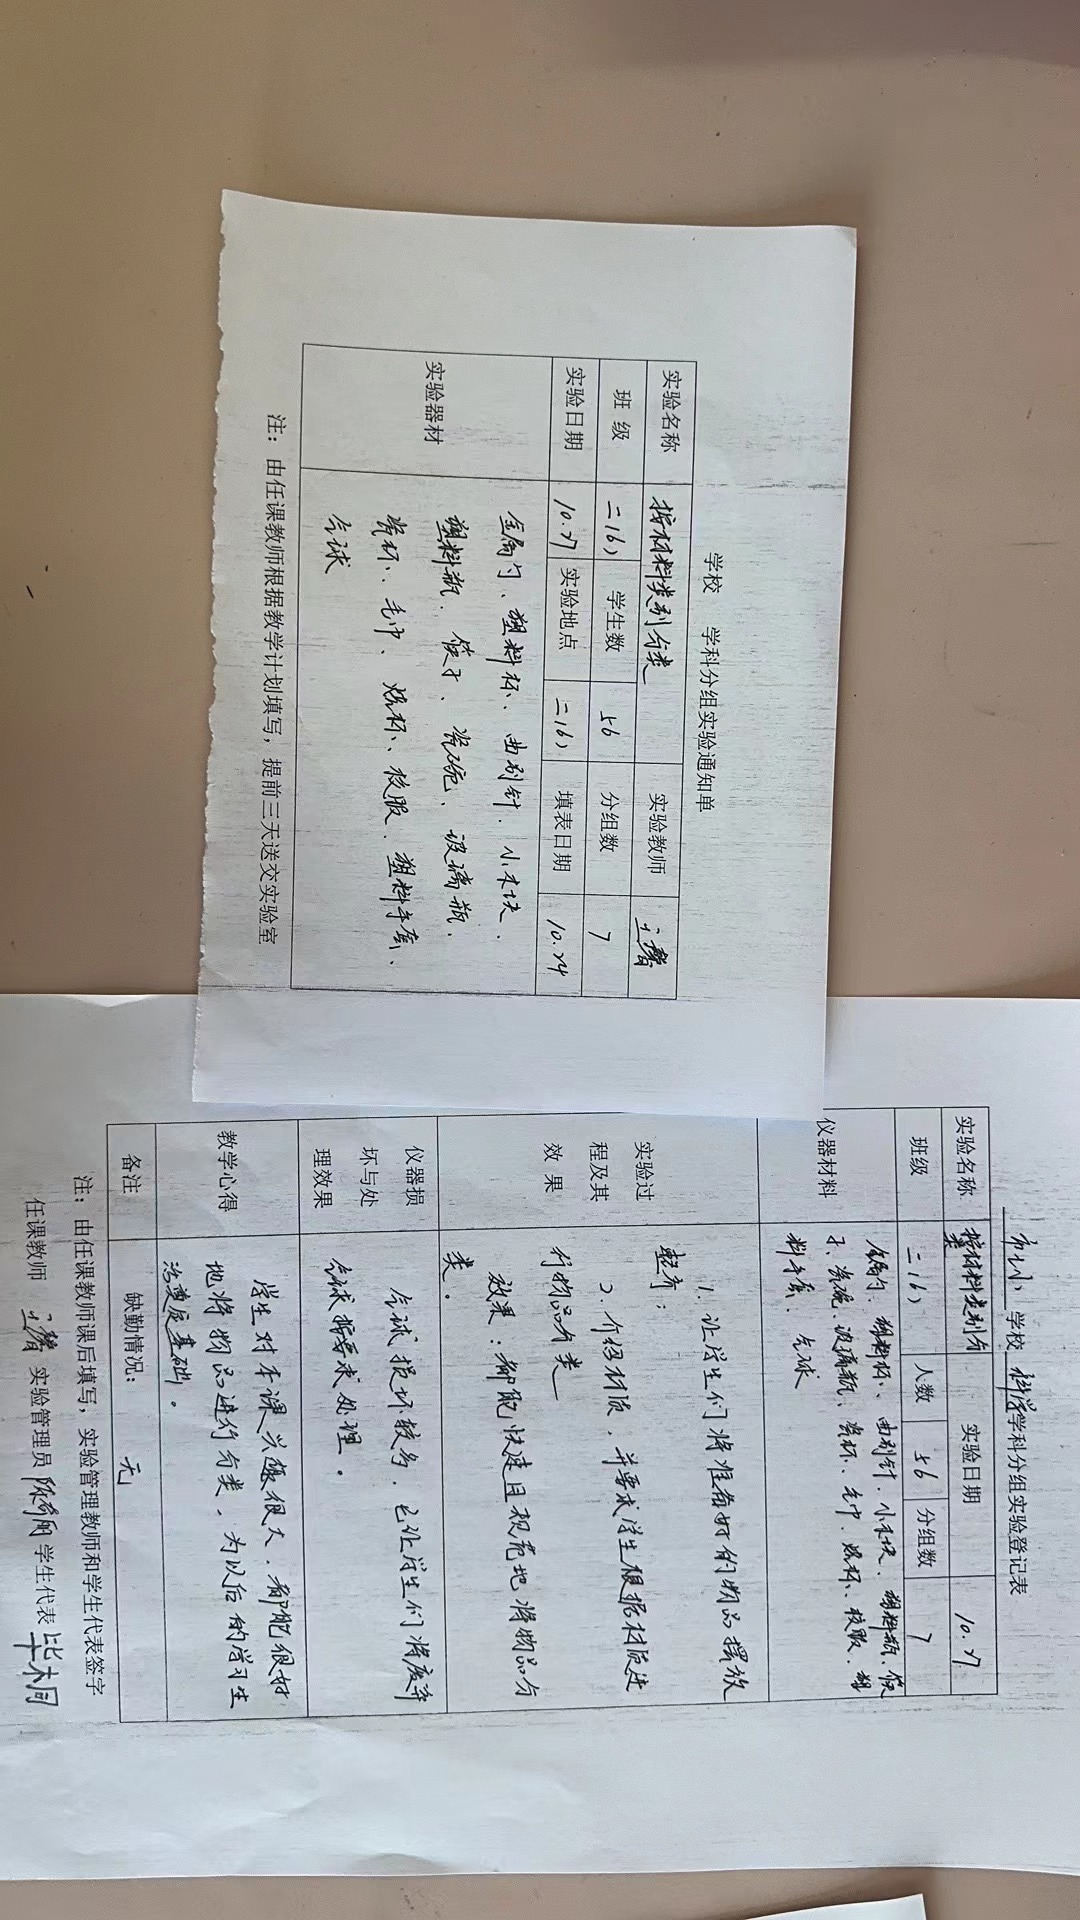 学校 学科分组实验通知单
实验名称 按材料类别分类 实验教师
班 级 二(6) 学生数 56 分组数 7
实验日期 10.27 实验地点 二(6) 填表日期 10.24
实验器材
金属勺、塑料杯、曲别针、小木块、
塑料瓶、筷子、瓷碗、玻璃瓶、
瓷杯、毛巾、烧杯、校服、塑料手套、
气球
注：由任课教师根据教学计划填写，提前三天送交实验室
学校 科学 学科分组实验登记表
实验名称 按材料类别分类 实验日期 10.27
班级 二(6) 人数 56 分组数 7
仪器材料
金属勺、塑料杯、曲别针、小木块、塑料瓶、筷
子、瓷碗、玻璃瓶、瓷杯、毛巾、烧杯、校服、塑
料手套、气球
实验过
程及其
效 果
1. 让学生们将准备好的物品摆放
整齐；
2. 介绍材质，并要求学生根据材质进
行物品分类
效果：都能快速且规范地将物品分
类。
仪器损
坏与处
理效果
气球损坏较多，已让学生们将废弃
气球按要求处理。
教学心得
学生对本课兴趣很大，都能很好
地将物品进行分类，为以后的学习生
活奠定基础。
备注 缺勤情况： 无
注：由任课教师课后填写，实验管理教师和学生代表签字
任课教师 实验管理员 学生代表